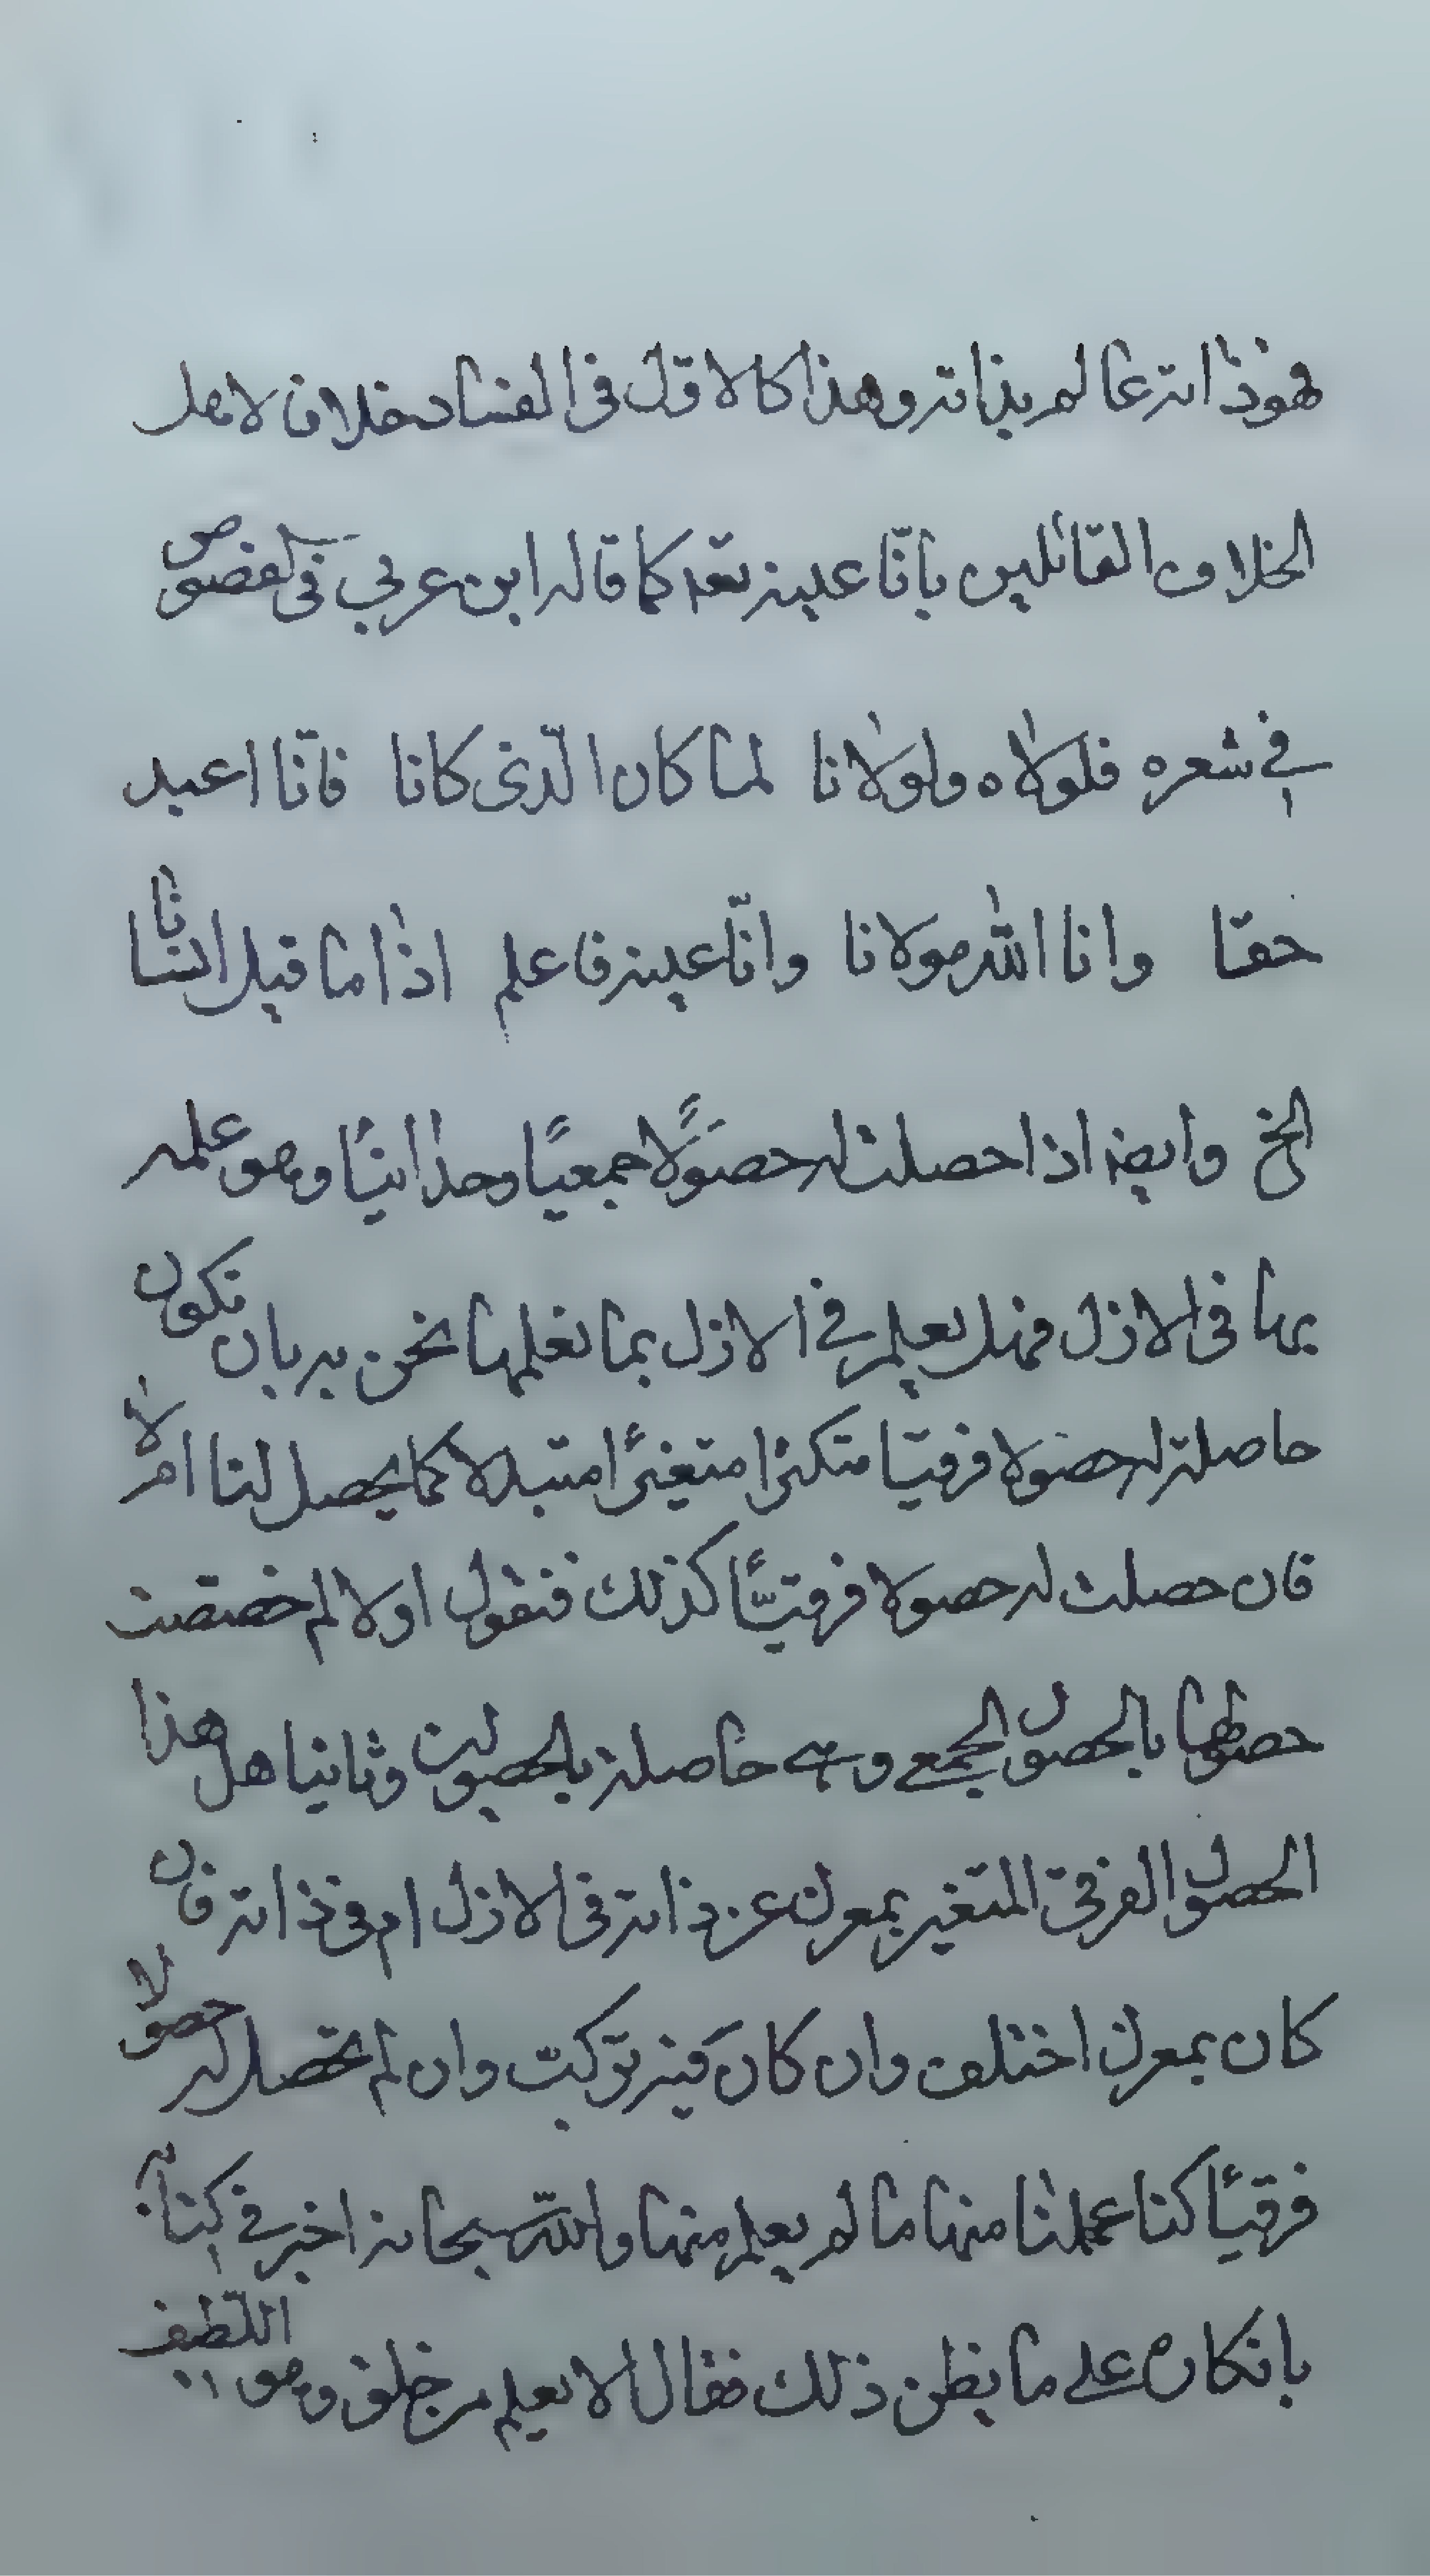 فهو ذاته عالم بذاته وهذا كالاول فى الفساد خلافا لاهل
الخلاف القائلين بانّا عينه تعه كما قاله ابن عربي فى الفصوص
في شعره فلولاه ولولانا لما كان الّذى كانا فانّا اعبد
حقا وانا الله مولانا وانّا عينه فاعلم اذا ما قيل انسانا
الخ وايضا اذا حصلت له حصولًا جمعيًا وحدانيًا وهو علمه
بها فى الازل فهل يعلم في الازل بما نعلمها نحن به بان تكون
حاصلة له حصولا فرقيا متكثرا متغيرا متبدلا كما يحصل لنا ام لا
فان حصلت له حصولا فرقيّا كذلك فنقول اولا لم خصصت
حصولها بالحصول الجمعي وهي حاصلة بالحصولين وثانيا هل هذا
الحصول الفرقى المتغير بمعزل عن ذاته فى الازل ام فى ذاته فان
كان بمعزل اختلف وان كان فيه تركبت وان لم تحصل له حصولا
فرقيًا كنا علمنا منها ما لم يعلم منها والله سبحانه اخبر في كتابه
بانكار على ما يظن ذلك فقال الا يعلم من خلق وهو اللطيف